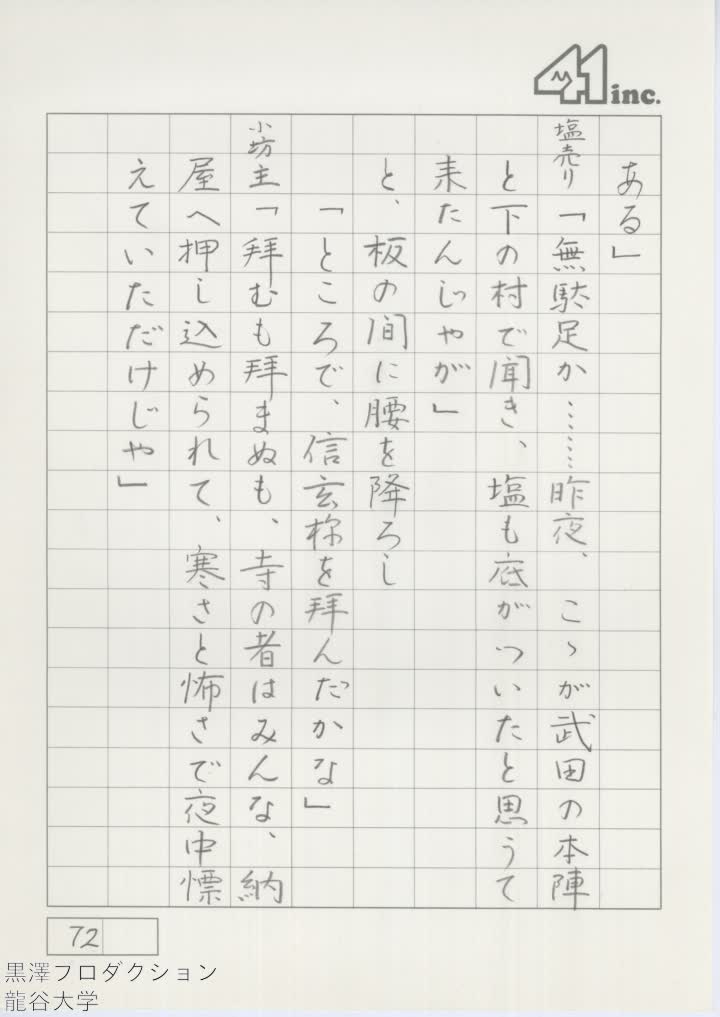 41 inc.
ある」
塩売り「無駄足か……昨夜、こゝが武田の本陣
と下の村で聞き、塩も底がついたと思うて
来たんじゃが」
と、板の間に腰を降ろし
「ところで、信玄様を拝んだかな」
小坊主「拝むも拝まぬも、寺の者はみんな、納
屋へ押し込められて、寒さと怖さで夜中慄
えていただけじゃ」
72
黒澤プロダクション
龍谷大学